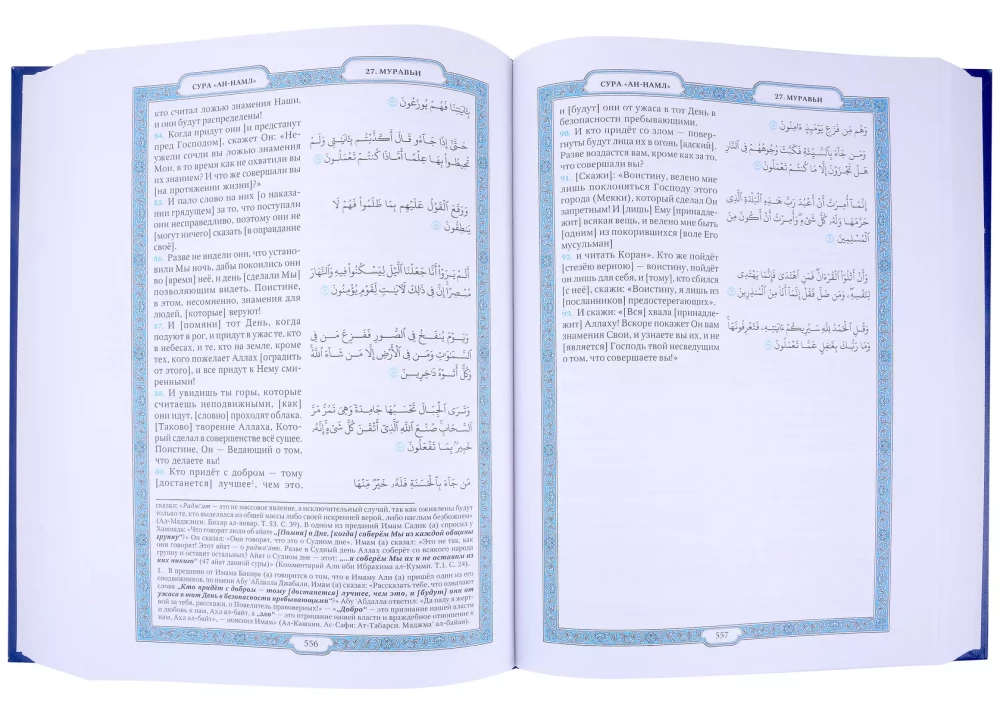 СУРА «АН-НАМЛ»
27. МУРАВЬИ
кто считал ложью знамения Наши,
и они будут распределены!
84. Когда придут они [и предстанут
пред Господом], скажет Он: «Не-
ужели сочли вы ложью знамения
Мои, в то время как не охватили вы
их знанием? И что же совершали вы
[на протяжении жизни]?»
85. И пало слово на них [о наказа-
нии грядущем] за то, что поступали
они несправедливо, поэтому они не
[могут ничего] сказать [в оправдание
своё].
86. Разве не видели они, что устано-
вили Мы ночь, дабы покоились они
во [время] неё, и день [сделали Мы]
позволяющим видеть. Поистине,
в этом, несомненно, знамения для
людей, [которые] веруют!
87. И [помяни] тот День, когда
подуют в рог, и придут в ужас те, кто
в небесах, и те, кто на земле, кроме
тех, кого пожелает Аллах [оградить
от этого], и все придут к Нему сми-
ренными!
88. И увидишь ты горы, которые
считаешь неподвижными, [как]
они идут, [словно] проходят облака.
[Таково] творение Аллаха, Кото-
рый сделал в совершенстве всё сущее.
Поистине, Он — Ведающий о том,
что делаете вы!
89. Кто придёт с добром — тому
[достанется] лучшее¹, чем это,
بِـَٔايَـٰتِنَا فَهُمْ يُوزَعُونَ
حَتَّىٰٓ إِذَا جَآءُو قَالَ أَكَذَّبْتُم بِـَٔايَـٰتِى وَلَمْ
تُحِيطُوا۟ بِهَا عِلْمًا أَمَّاذَا كُنتُمْ تَعْمَلُونَ
وَوَقَعَ ٱلْقَوْلُ عَلَيْهِم بِمَا ظَلَمُوا۟ فَهُمْ لَا
يَنطِقُونَ
أَلَمْ يَرَوْا۟ أَنَّا جَعَلْنَا ٱلَّيْلَ لِيَسْكُنُوا۟ فِيهِ وَٱلنَّهَارَ
مُبْصِرًا إِنَّ فِى ذَٰلِكَ لَـَٔايَـٰتٍ لِّقَوْمٍ يُؤْمِنُونَ
وَيَوْمَ يُنفَخُ فِى ٱلصُّورِ فَفَزِعَ مَن فِى
ٱلسَّمَـٰوَٰتِ وَمَن فِى ٱلْأَرْضِ إِلَّا مَن شَآءَ ٱللَّهُ
وَكُلٌّ أَتَوْهُ دَٰخِرِينَ
وَتَرَى ٱلْجِبَالَ تَحْسَبُهَا جَامِدَةً وَهِىَ تَمُرُّ مَرَّ
ٱلسَّحَابِ صُنْعَ ٱللَّهِ ٱلَّذِىٓ أَتْقَنَ كُلَّ شَىْءٍ إِنَّهُۥ
خَبِيرٌۢ بِمَا تَفْعَلُونَ
مَن جَآءَ بِٱلْحَسَنَةِ فَلَهُۥ خَيْرٌ مِّنْهَا
сказал: «Радж‘ат — это не массовое явление, а исключительный случай, так как оживлены будут
только те, кто выделялся из общей массы либо своей искренней верой, либо наглым безбожием»
(Ал-Маджлиси. Бихар ал-анвар. Т. 53. С. 39). В одном из преданий Имам Садик (а) спросил у
Хаммада: «Что говорят люди об айате „[Помяни] о Дне, [когда] соберём Мы из каждой общины
группу“?» Он сказал: «Они говорят, что это о Судном дне». Имам (а) сказал: «Это не так, как
они говорят! Этот айат — о радж‘ате. Разве в Судный день Аллах соберёт со всякого народа
группу и оставит остальных? Айат о Судном дне — этот: „...и соберём Мы их и не оставим из
них никого“ (47 айат данной суры)» (Комментарий Али ибн Ибрахима ал-Кумми. Т.1. С. 24).
1. В предании от Имама Бакира (а) говорится о том, что к Имаму Али (а) пришёл один из его
сподвижников, по имени Абу ‘Абдалла Джабали. Имам (а) сказал: «Рассказать тебе, что означают
слова „Кто придёт с добром — тому [достанется] лучшее, чем это, и [будут] они от
ужаса в тот День в безопасности пребывающими“?» Абу ‘Абдалла ответил: «Да паду я жерт-
вой за тебя, расскажи, о Повелитель правоверных!» — «„Добро“ — это признание нашей власти
и любовь к нам, Ахл ал-байт, а „зло“ — это отрицание нашей власти и враждебное отношение к
нам, Ахл ал-байт», — пояснил Имам» (Ал-Кашани. Ас-Сафи; Ат-Табарси. Маджма‘ ал-байан).
556
СУРА «АН-НАМЛ»
27. МУРАВЬИ
и [будут] они от ужаса в тот День в
безопасности пребывающими.
90. И кто придёт со злом — повер-
гнуты будут лица их в огонь [адский].
Разве воздастся вам, кроме как за то,
что совершали вы?
91. [Скажи]: «Воистину, велено мне
лишь поклоняться Господу этого
города (Мекки), который сделал Он
запретным! И [лишь] Ему [принадле-
жит] всякая вещь, и велено мне быть
[одним] из покорившихся [воле Его
мусульман]
92. и читать Коран». Кто же пойдёт
[стезёю верною] — воистину, пойдёт
он лишь для себя, и [тому], кто сбился
[с неё], скажи: «Воистину, я лишь из
[посланников] предостерегающих».
93. И скажи: «[Вся] хвала [принадле-
жит] Аллаху! Вскоре покажет Он вам
знамения Свои, и узнаете вы их, и не
[является] Господь твой несведущим
о том, что совершаете вы!»
وَهُم مِّن فَزَعٍ يَوْمَئِذٍ ءَامِنُونَ
وَمَن جَآءَ بِٱلسَّيِّئَةِ فَكُبَّتْ وُجُوهُهُمْ فِى ٱلنَّارِ
هَلْ تُجْزَوْنَ إِلَّا مَا كُنتُمْ تَعْمَلُونَ
إِنَّمَآ أُمِرْتُ أَنْ أَعْبُدَ رَبَّ هَـٰذِهِ ٱلْبَلْدَةِ ٱلَّذِى
حَرَّمَهَا وَلَهُۥ كُلُّ شَىْءٍ وَأُمِرْتُ أَنْ أَكُونَ مِنَ
ٱلْمُسْلِمِينَ
وَأَنْ أَتْلُوَا۟ ٱلْقُرْءَانَ فَمَنِ ٱهْتَدَىٰ فَإِنَّمَا يَهْتَدِى
لِنَفْسِهِۦ وَمَن ضَلَّ فَقُلْ إِنَّمَآ أَنَا۠ مِنَ ٱلْمُنذِرِينَ
وَقُلِ ٱلْحَمْدُ لِلَّهِ سَيُرِيكُمْ ءَايَـٰتِهِۦ فَتَعْرِفُونَهَا
وَمَا رَبُّكَ بِغَـٰفِلٍ عَمَّا تَعْمَلُونَ
557